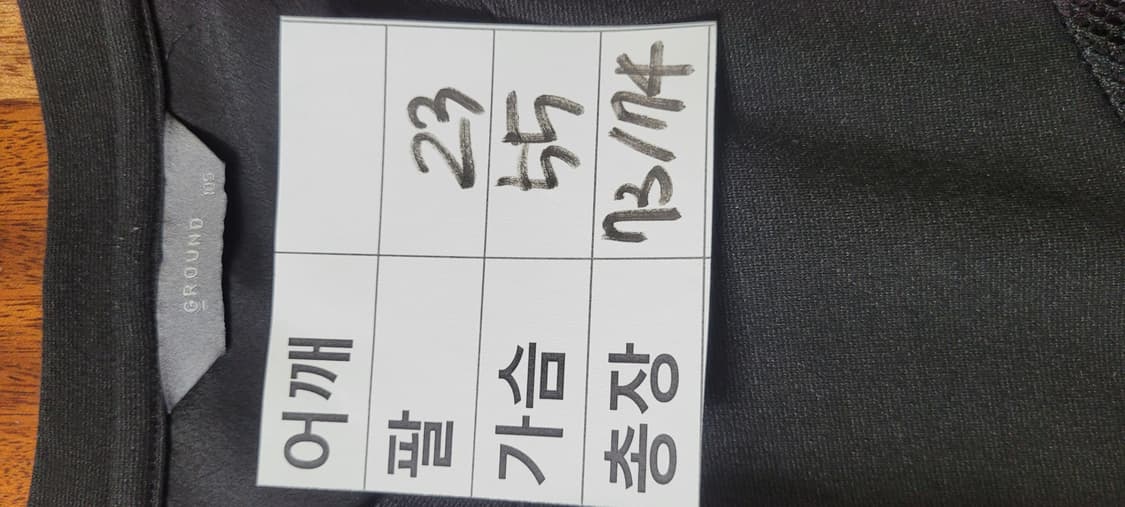 GROUND 105
어깨
팔 23
가슴 55
총장 73/74